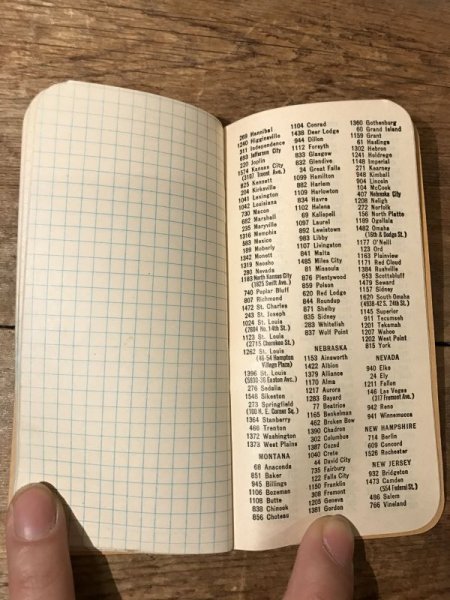 269 Hannibal
1240 Higginsville
311 Independence
693 Jefferson City
220 Joplin
1574 Kansas City
(3197 Troost Ave.)
825 Kennett
204 Kirksville
1041 Lexington
1042 Louisiana
730 Macon
682 Marshall
235 Maryville
1316 Memphis
563 Mexico
189 Moberly
1342 Monett
1319 Neosho
280 Nevada
1183 North Kansas City
(1825 Swift Ave.)
740 Poplar Bluff
807 Richmond
1472 St. Charles
243 St. Joseph
1024 St. Louis
1123 St. Louis
(2715 Cherokee St.)
1262 St. Louis
(46-54 Hampton
Village Plaza)
1396 St. Louis
276 Sedalia
1548 Sikeston
273 Springfield
1364 Stanberry
460 Trenton
1372 Washington
1373 West Plains
MONTANA
68 Anaconda
851 Baker
945 Billings
1106 Bozeman
1108 Butte
838 Chinook
856 Choteau
1104 Conrad
1438 Deer Lodge
944 Dillon
1112 Forsyth
833 Glasgow
832 Glendive
34 Great Falls
1099 Hamilton
882 Harlem
1109 Harlowton
834 Havre
1102 Helena
69 Kalispell
1097 Laurel
892 Lewistown
983 Libby
1107 Livingston
841 Malta
1485 Miles City
81 Missoula
876 Plentywood
859 Polson
820 Red Lodge
844 Roundup
871 Shelby
835 Sidney
283 Whitefish
837 Wolf Point
NEBRASKA
1153 Ainsworth
1422 Albion
1379 Alliance
1170 Alma
1217 Aurora
1283 Bayard
77 Beatrice
1165 Benkelman
462 Broken Bow
1390 Chadron
302 Columbus
1387 Cozad
1040 Crete
44 David City
735 Fairbury
122 Falls City
1150 Franklin
308 Fremont
1205 Geneva
1361 Gordon
1360 Gothenburg
60 Grand Island
1159 Grant
61 Hastings
1302 Hebron
1241 Holdrege
1148 Imperial
271 Kearney
948 Kimball
904 Lincoln
104 McCook
407 Nebraska City
1208 Neligh
272 Norfolk
156 North Platte
1189 Ogallala
1482 Omaha
(16th & Dodge St.)
1177 O'Neill
123 Ord
1163 Plainview
1171 Red Cloud
1384 Rushville
953 Scottsbluff
1479 Seward
1157 Sidney
1620 South Omaha
(4938-42 S. 24th St.)
1145 Superior
911 Tecumseh
1201 Tekamah
1207 Wahoo
1202 West Point
815 York
NEVADA
940 Elko
24 Ely
1211 Fallon
146 Las Vegas
(317 Fremont Ave.)
942 Reno
941 Winnemucca
NEW HAMPSHIRE
714 Berlin
609 Concord
1526 Rochester
NEW JERSEY
932 Bridgeton
1473 Camden
(554 Federal St.)
486 Salem
766 Vineland